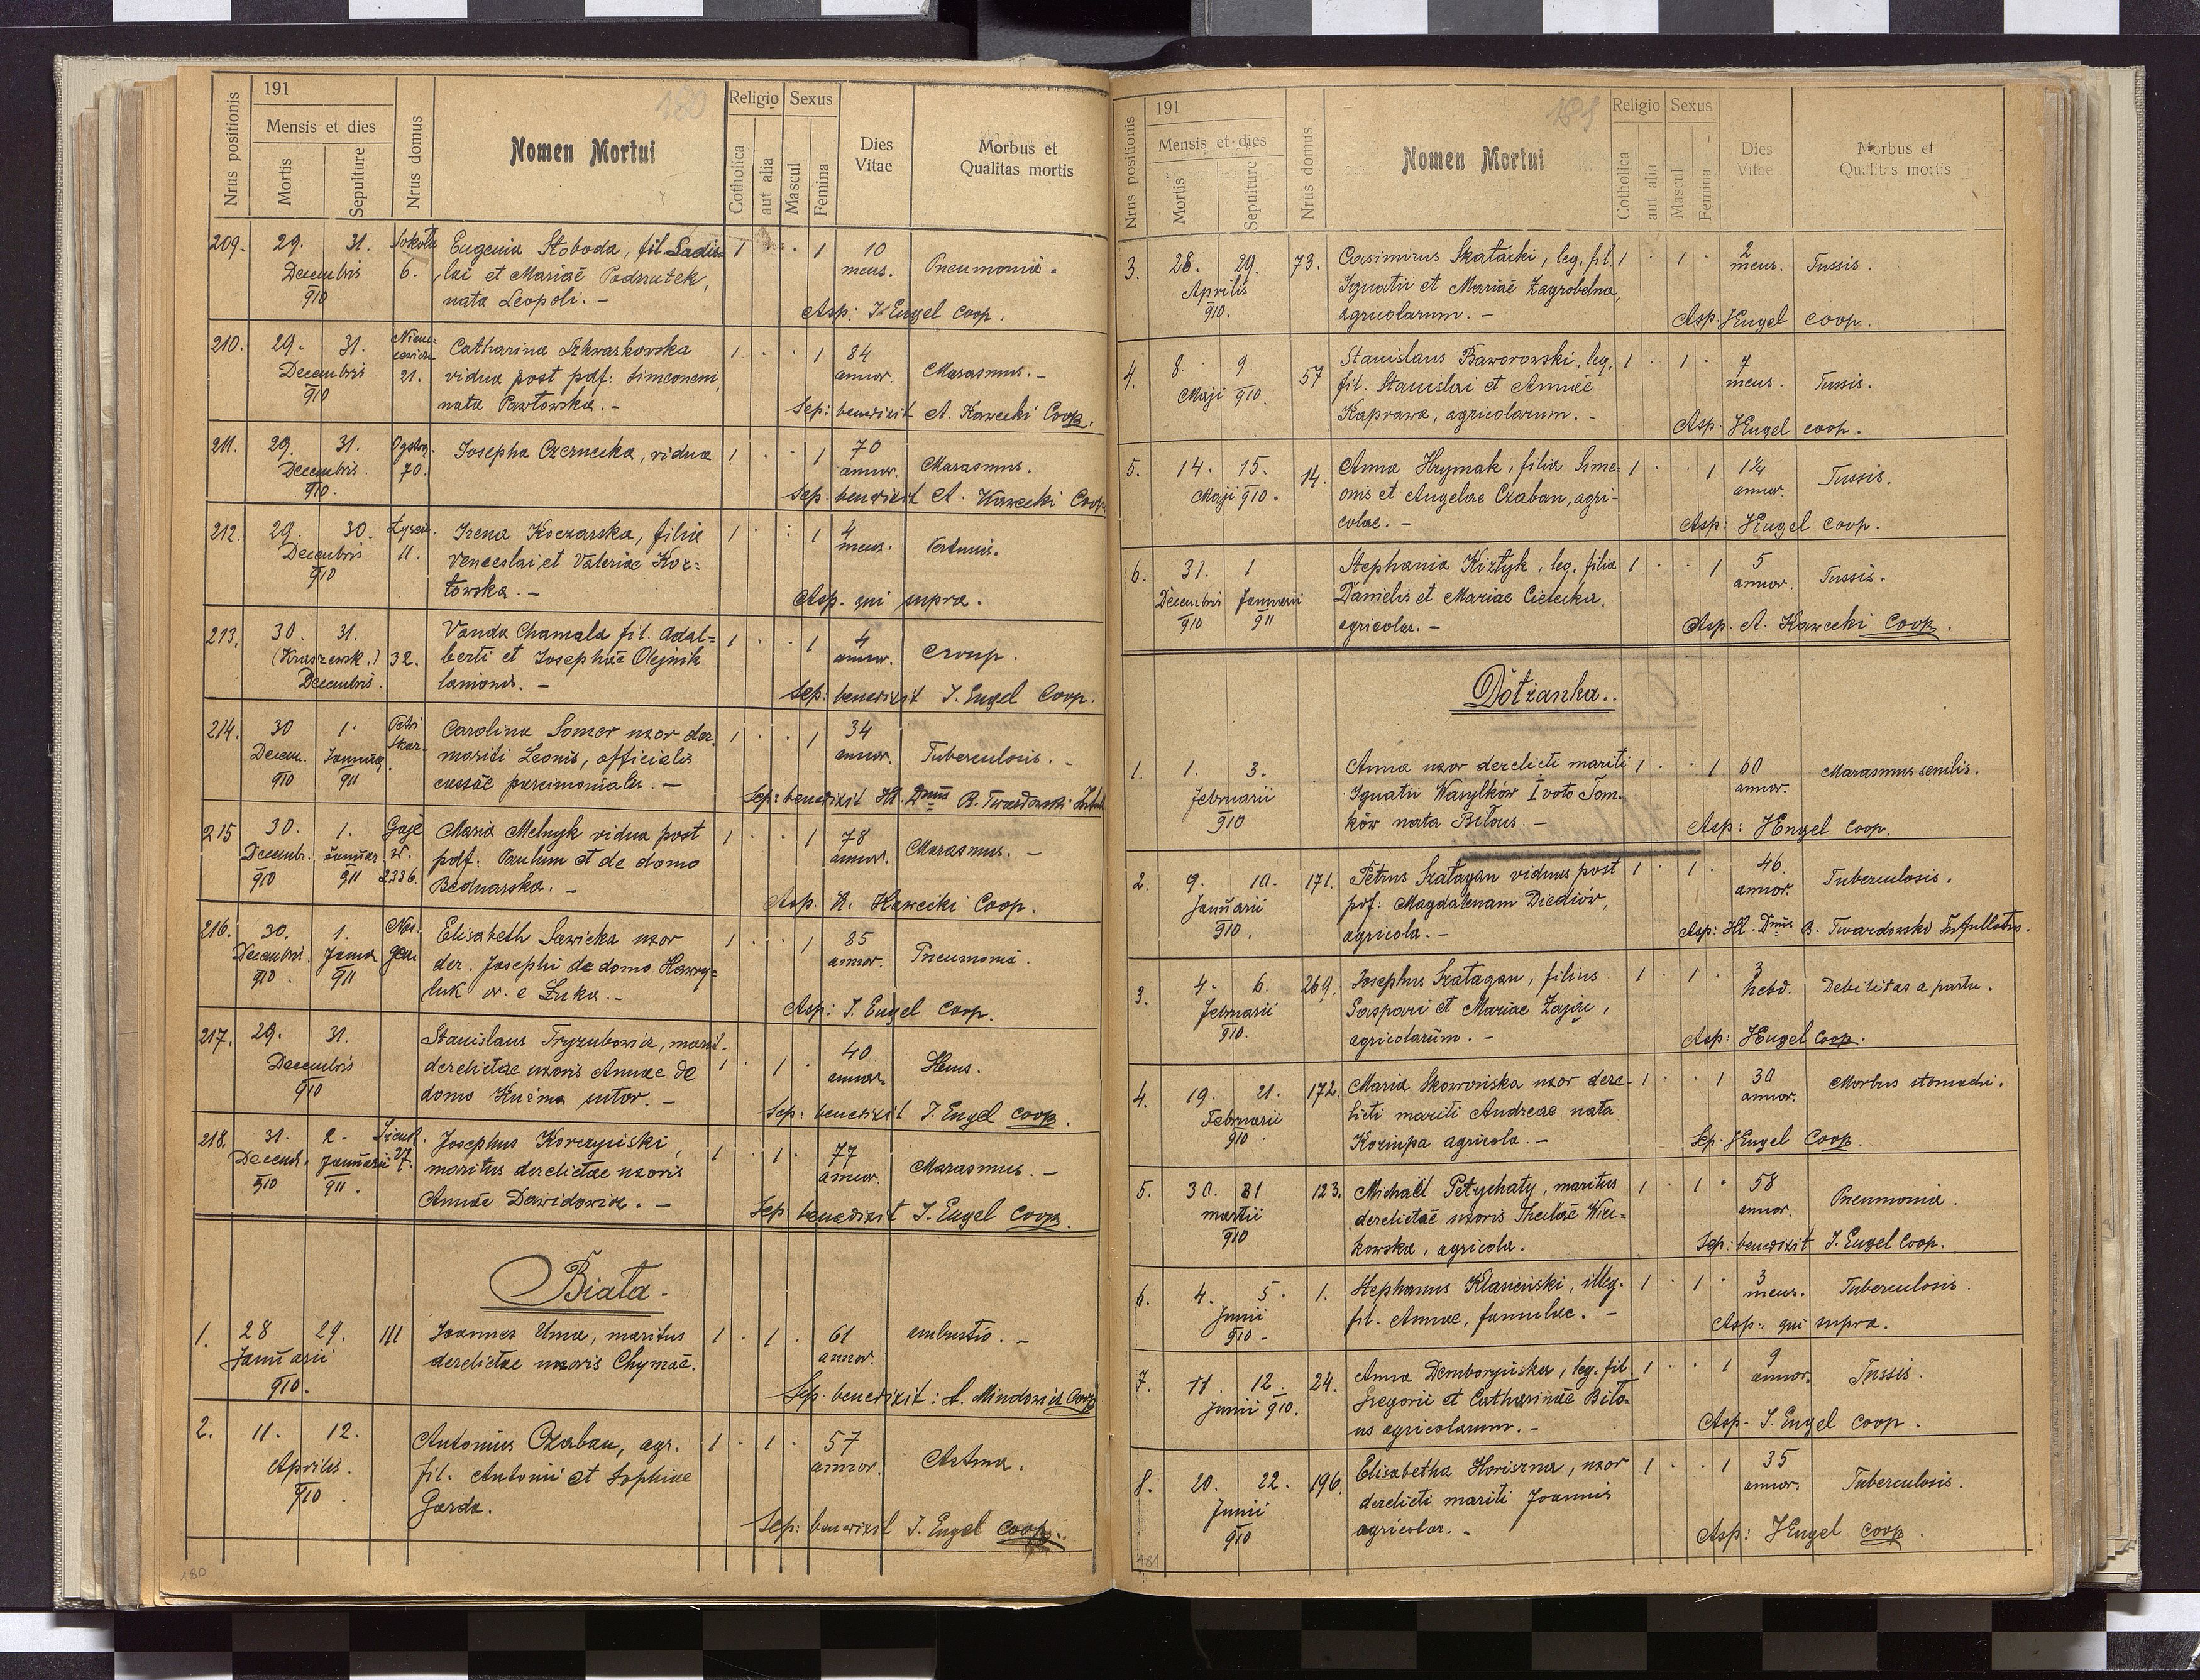 180
Nrus positionis
191
Mensis et dies
Mortis
Sepulture
Nrus domus
Nomen Mortui
Religio
Catholica
aut alia
Sexus
Mascul
Femina
Dies Vitae
Morbus et
Qualitas mortis
209. 29. 31. Sokoła Eugenia Słoboda, fil. Ladis- 1 1 10
Decembris 6. lai et Mariae Podrutek, mens. Pneumonia.
910 nata Leopoli. –
Asp: J. Engel Coop.
210. 29. 31. Catharina Szkwarkowska 1 1 84
Decembris 21. vidua post pdf: Simeonem, annor. Marasmus. –
910 nata Pawłowska. –
Sep: benedixit A. Kawecki Coop.
211. 29. 31. Josepha Czernecka, vidua 1 1 70
Decembris 70. annor. Marasmus.
910. Sep. benedixit A. Kawecki Coop
212. 29. 30. Irena Koczarska, filia 1 1 4
Decembris 11. Venceslai et Valeriae Koz= mens. Pertussis.
910 łowska. –
Asp. qui supra.
213. 30. 31. Vanda Chamala fil. Adal= 1 1 4
(Kraszewsk.) 32. berti et Josephae Olejnik annor. Croup.
Decembris. lanionis. –
Sep: benedixit J. Engel Coop.
214. 30 1. Petri Carolina Somer uxor der. 1 1 34
Decem. Januar. Skar- mariti Leonis, officialis annor. Tuberculosis. –
910 911 cassae parsimonialis. –
Sep: benedixit Ill. Dnus B. Twardowski
215 30. 1. Gaje Maria Melnyk vidua post 1 1 78
Decembr. Januar. w. pdf. Paulum et de domo annor. Marasmus. –
910 911 2336. Bednarska. –
Asp. A. Kawecki Coop.
216. 30. 1. Elisabeth Sawicka uxor 1 1 85
Decembri Janua der. Josephi de domo Hawry= annor. Pneumonia.
910 911 luk or. e Łuka. –
Asp: J. Engel Coop.
217. 29. 31. Stanislaus Tryzubowicz, marit.
Decembris derelictae uxoris Annae de 1 1 40
910 domo Kuźma sutor. – annor.
Sep: benedixit J. Engel Coop.
218. 31. 2. Josephus Korczyński, 1 1 77
Decemb. Januarii 27. maritus derelictae uxoris annor. Marasmus. –
910 911. Annae Dawidowicz. –
Sep: benedixit J. Engel Coop.
Biała.
1. 28 29. 111 Joannes Uma, maritus 1 1 61 ambustio. –
Januarii derelictae uxoris Chymae. annor.
910. Sep. benedixit: A. Mindowicz Coop
2. 11. 12. Antonius Czaban, agr. 1 1 57
Aprilis. fil. Antonii et Sophiae annor. Astma.
910 Garda.
Sep: benedixit J. Engel Coop.
180
181
Nrus positionis
191
Mensis et dies
Mortis
Sepulture
Nrus domus
Nomen Mortui
Religio
Catholica
aut alia
Sexus
Mascul
Femina
Dies
Vitae
Morbus et
Qualitas mortis
3. 28. 29. 73. Casimirus Skałacki, leg. fil. 1 1 2
Aprilis Ignatii et Mariae Zagrobelna, mens. Tussis.
910. agricolarum. –
Asp. JEngel coop.
4. 8. 9. 57 Stanislaus Baworowski, leg. 1 1 7
Maji 910. fil. Stanislai et Annae mens. Tussis.
Kaprawa, agricolarum. –
Asp. JEngel coop.
5. 14. 15. 14. Anna Hrymak, filia Sime- 1 1 1¼
Maji 910. onis et Angelae Czaban, agri- annor. Tussis.
colae. –
Asp: JEngel Coop.
6. 31. 1 Stephania Kiztyk, leg. filia 1 1 5
Decembris Januarii Danielis et Mariae Cielecka, annor. Tussis.
910 911 agricolar. –
Asp. A. Kawecki Coop.
Dołżanka..
1. 1. 3. Anna uxor derelicti mariti 1 1 60 Marasmus senilis.
Februarii Ignatii Wasylków I voto Tom- annor.
910 ków nata Biłous. –
Asp: JEngel Coop.
2. 9. 10. 171. Petrus Szatagan viduus post 1 1 46. Tuberculosis.
Januarii pdf: Magdalenam Diediów, annor.
910. agricola. –
Asp: Ill. Dnus B. Twardowski Infullatus.
3. 4. 6. 269. Josephus Szatagan, filius 1 1 3
Februarii Gaspari et Mariae Zając, hebd. Debilitas a partu.
910. agricolarum. –
Asp: JEngel Coop.
4. 19. 21. 172. Maria Skowrońska uxor dere- 1 1 30 Morbus stomachi.
Februarii licti mariti Andreae nata annor.
910. Kozinpa agricola. –
Sep. JEngel Coop.
5. 30. 31 123. Michael Petychaty, maritus 1 1 58
martii derelictae uxoris Theclae Wier= annor. Pneumonia.
910 kowska, agricola.
Sep: benedixit J. Engel Coop.
6. 4. 5. 1. Stephanus Klasieński, illeg. 1 1 3 Tuberculosis.
Junii fil. Annae, famulae. – mens.
910 - Asp.: qui supra.
7. 11. 12. 24. Anna Demboryńska, leg. fil 1 1 9 Tussis.
Junii 910. Gregorii et Catharinae Biło- annor.
us agricolarum. –
Asp. J. Engel Coop.
8. 20. 22. 196. Elisabetha Horiszna, uxor 1 1 35
Junii derelicti mariti Joannis annor. Tuberculosis.
910 agricolar. –
Asp: JEngel Coop.
181